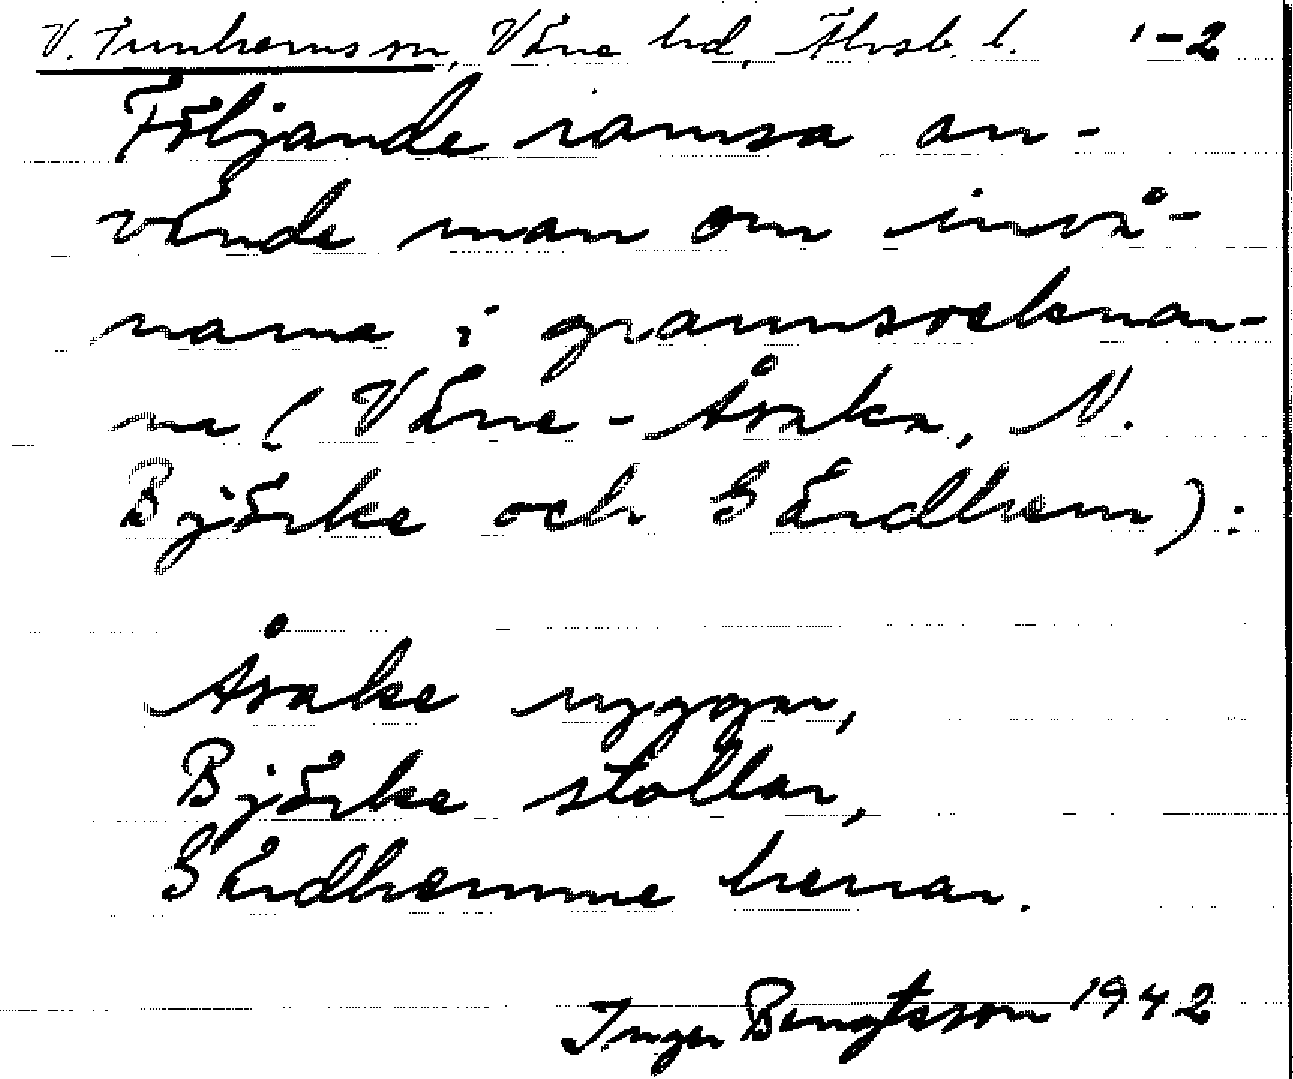 V. Tunhems sn, Väne hd, Älvsb. l. 1-2
Följande ramsa an-
vände man om invå-
narna i grannsocknar-
na (Väne-Åsaka, N.
Björke och Gärdhem):
Åsake ryggar,
Björke stollar,
Gärdhemme herrar.
Inger Bengtsson 1942